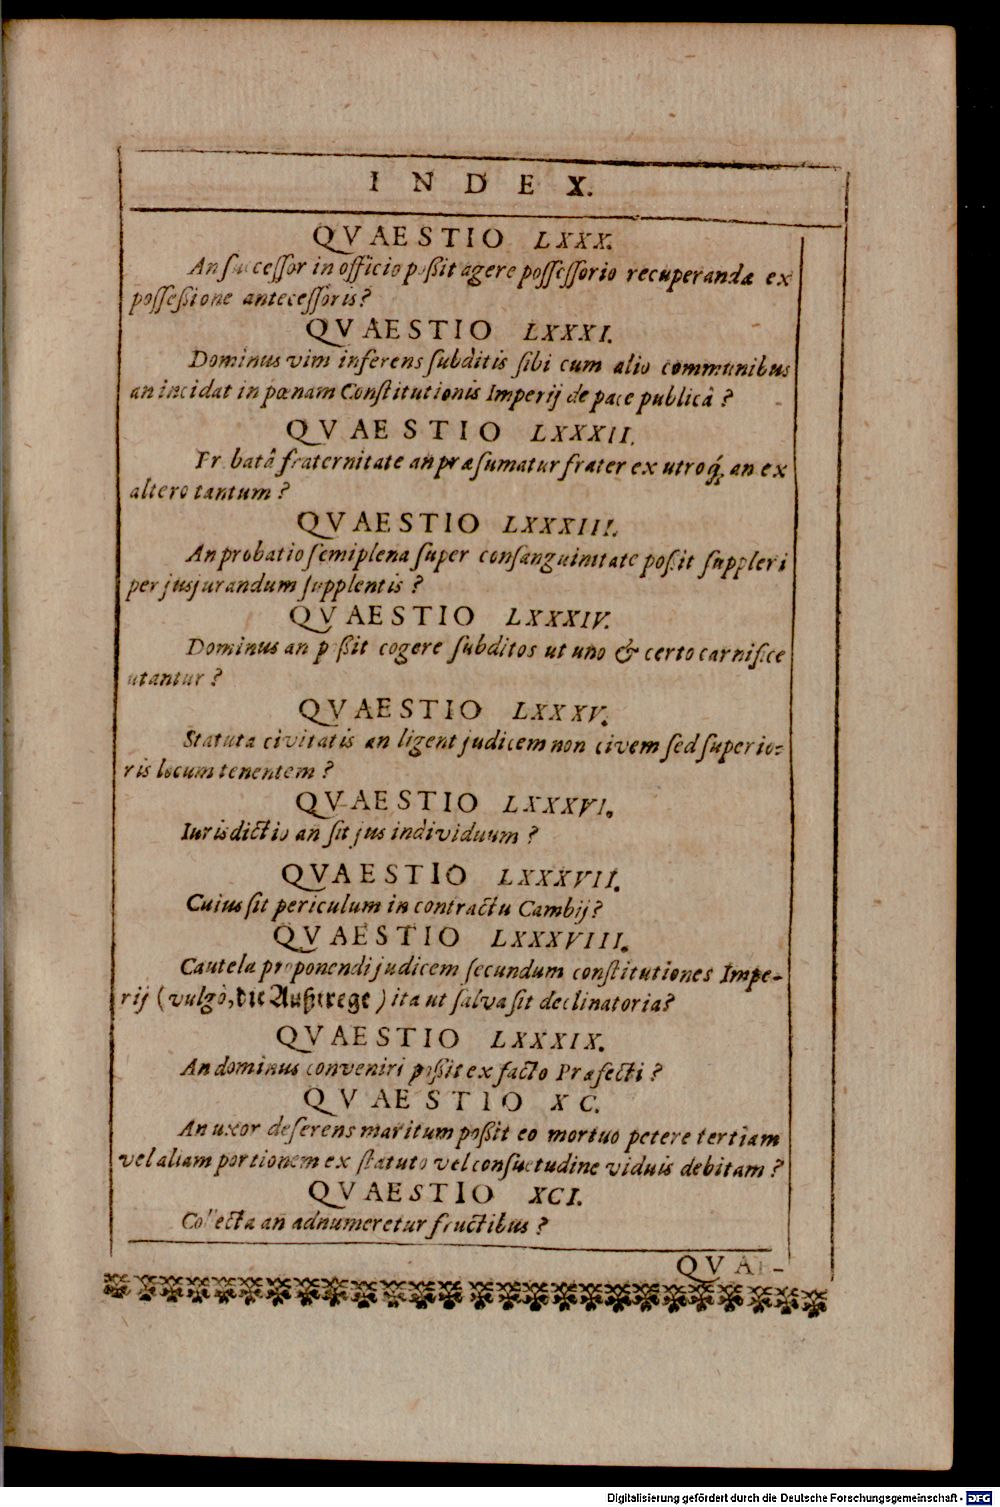 INDEX.
QVAESTIO LXXX.
An successor in officio poßit agere possessorio recuperandæ ex
posseßione antecessoris?
QVAESTIO LXXXI.
Dominus vim inferens subditis sibi cum alio communibus
an incidat in pœnam Constitutionis Imperij de pace publicâ?
QVAESTIO LXXXII.
Probatâ fraternitate an præsumatur frater ex utroq́; an ex
altero tantum?
QVAESTIO LXXXIII.
An probatio semiplena super consanguinitate poßit suppleri
per jusjurandum supplentis?
QVAESTIO LXXXIV.
Dominus an poßit cogere subditos ut uno & certo carnifice
utantur?
QVAESTIO LXXXV.
Statuta civitatis an ligent judicem non civem sed superio-
ris locum tenentem?
QVAESTIO LXXXVI.
Iurisdictio an sit jus individuum?
QVAESTIO LXXXVII.
Cuius sit periculum in contractu Cambij?
QVAESTIO LXXXVIII.
Cautela proponendi judicem secundum constitutiones Impe-
rij (vulgò, die Außtrege) ita ut salva sit declinatoria?
QVAESTIO LXXXIX.
An dominus conveniri poßit ex facto Præfecti?
QVAESTIO XC.
An uxor deserens maritum poßit eo mortuo petere tertiam
vel aliam portionem ex statuto vel consuetudine viduis debitam?
QVAESTIO XCI.
Collecta an adnumeretur fructibus?
QVAE-
Digitalisierung gefördert durch die Deutsche Forschungsgemeinschaft - DFG